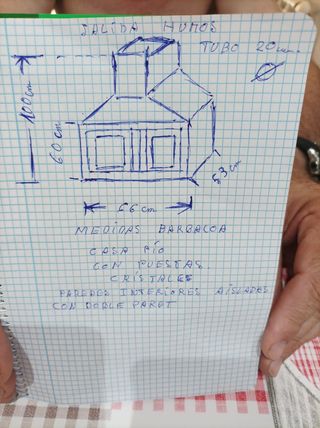 SALIDA HUMOS
TUBO 20 cm.
100 cm
60 cm
53 cm
66 cm
MEDIDAS BARBACOA
CASA PÍO
CON PUESTAS.
CRISTALES
PAREDES INTERIORES AISLADAS
CON DOBLE PARET